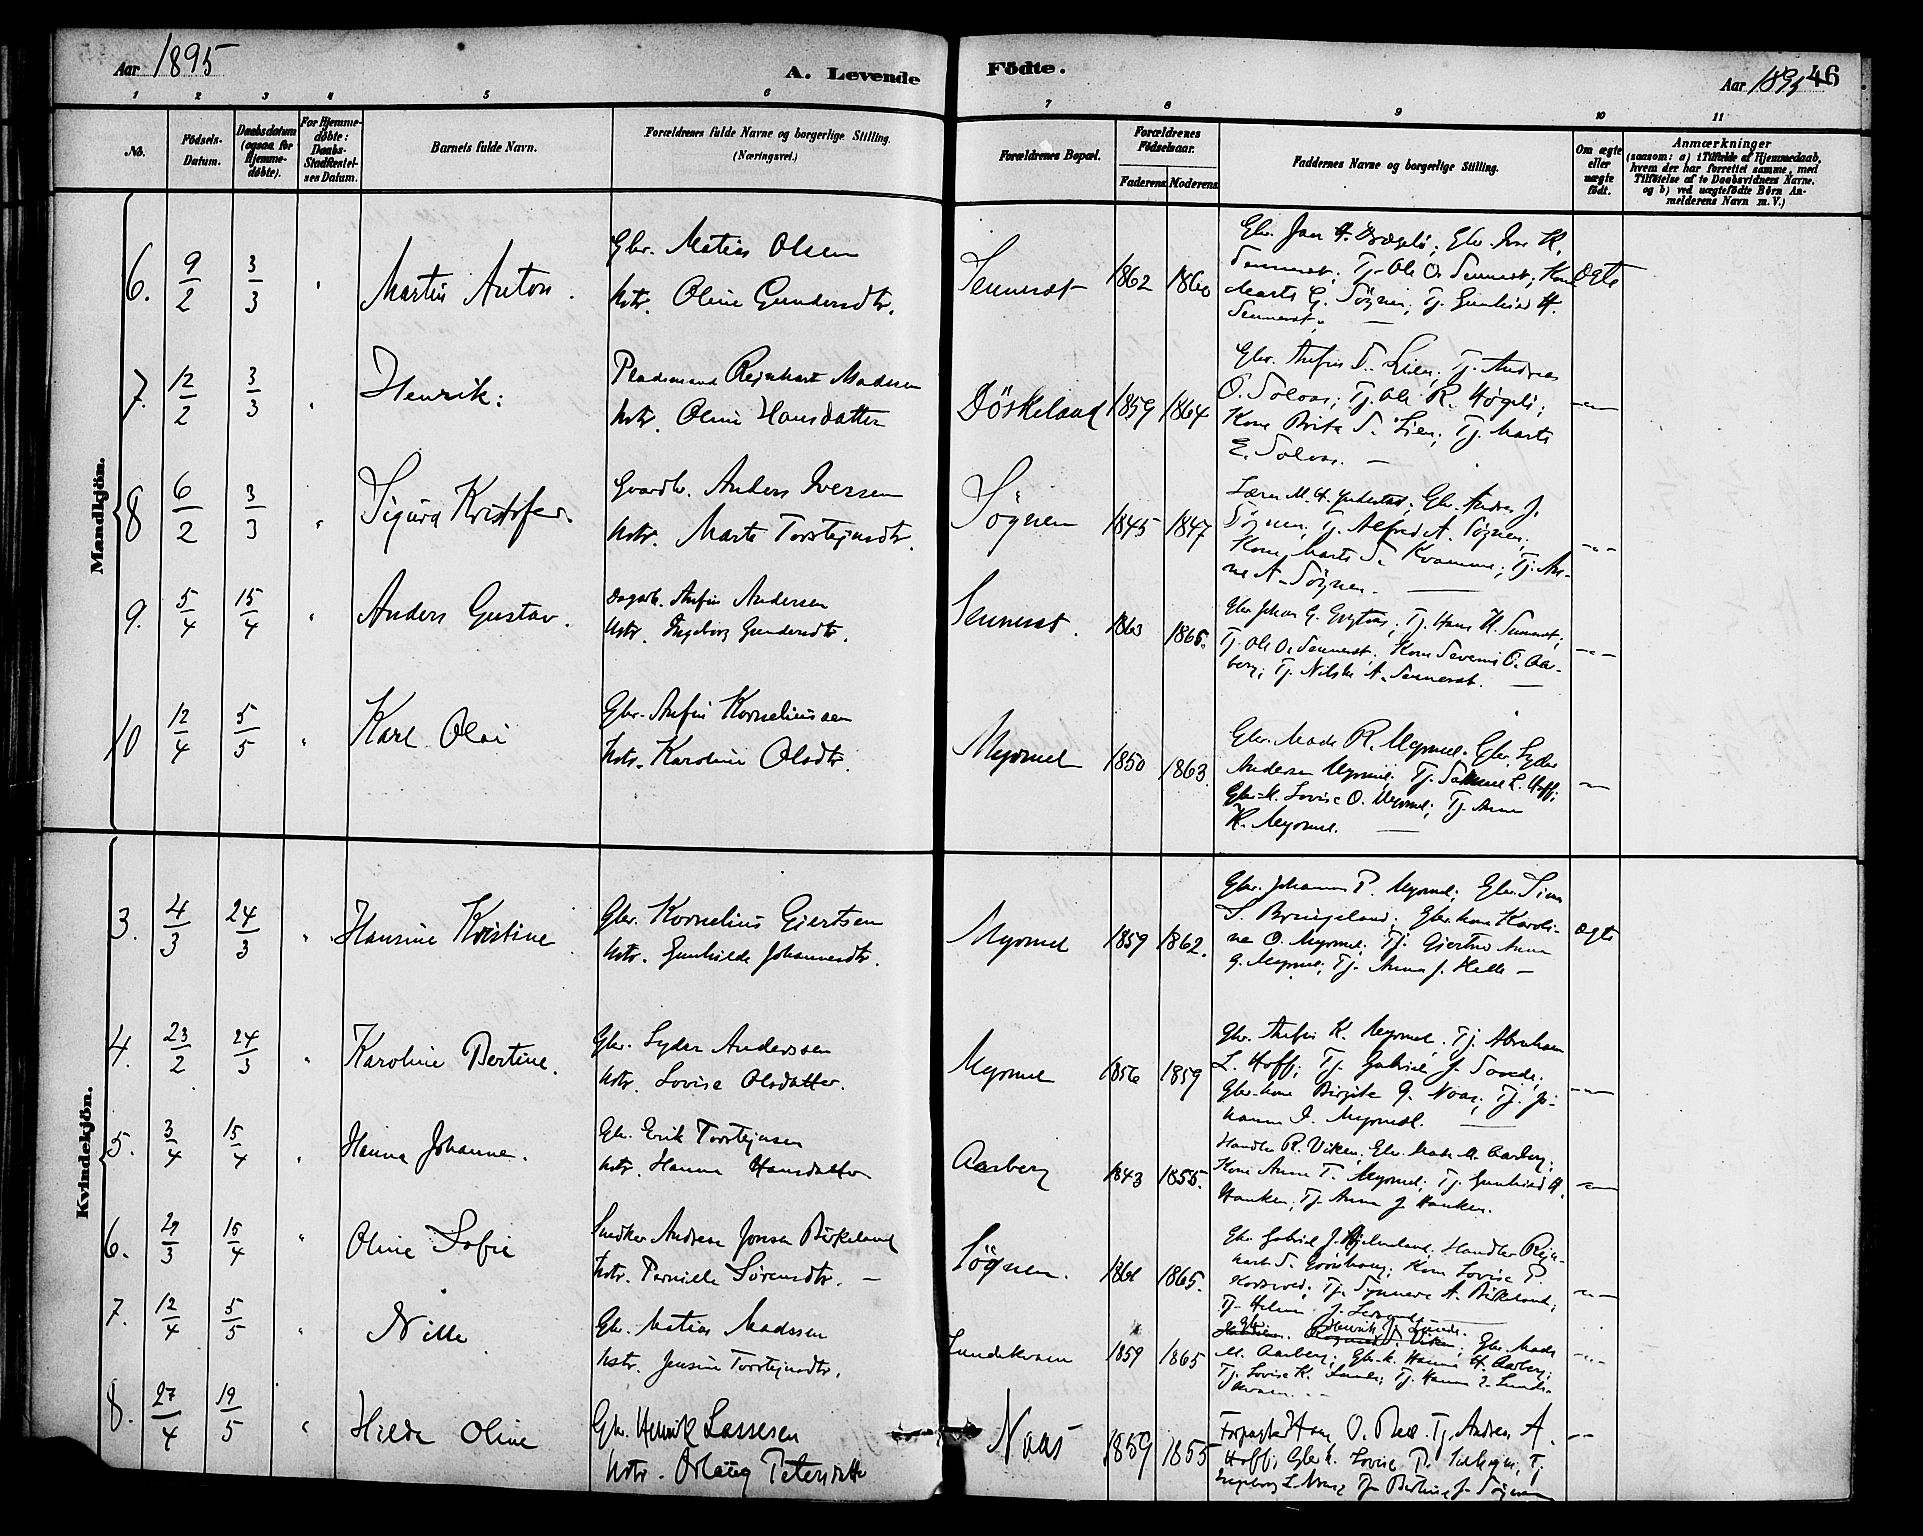 Aar 1895
A. Levende
Födte.
Aar 1895 46
1 2 3 4 5 6 7 8 9 10 11
No.
Födsels-
Datum.
Daabsdatum
(ogsaa for
Hjemme-
döbte).
For Hjemme-
döbte:
Daabs-
Stadfæstel-
ses Datum.
Barnets fulde Navn.
Forældrenes fulde Navne og borgerlige Stilling.
(Næringsvei.)
Forældrenes Bopæl.
Forældrenes
Födselsaar.
Faderens Moderens
Faddernes Navne og borgerlige Stilling.
Om ægte
eller
uægte
födt.
Anmærkninger
(saasom: a) i Tilfælde af Hjemmedaab,
hvem der har forrettet samme, med
Tilföielse af to Daabsvidners Navne,
og b) ved uægtefödte Börn An-
melderens Navn m. V.)
Mandkjön.
6. 9/2 3/3 " Martin Anton.
Gbr. Matias Olsen
Hstr. Oline Gundersdtr.
Sennesæt 1862 1860
Tj. Ole O. Sennesæt; Kone
Marte G. Sögnen; Tj. Gunhild H.
Sennesæt. —
ægte
7. 12/2 3/3 " Henrik:
Pladsmand Reinhart Madsen
Hstr. Oline Hansdatter
Döskeland 1859 1864
Gbr. Anfin S. Lien; Tj. Andreas
O. Solaas; Tj. Ole R. Högeli;
Kone Brita S. Lien; Tj. Marte
E. Solaas. —
— " —
8 6/2 3/3 " Sigurd Kristofer.
Gaardbr. Anders Iversen
Hstr. Marte Torsteinsdtr.
Sögnen 1845 1847
Sögnen; Tj. Alfred A. Sögnen;
Kone Marte S. Kvamme; Tj. An-
ne A. Sögnen. —
— " —
9. 5/4 15/4 " Anders Gustav.
Dagarb. Anfin Andersen
Hstr. Ingeborg Gundersdtr.
Sennesæt. 1863 1865.
Tj. Hans H. Sennesæt;
Tj. Ole O. Sennesæt; Kone Severine O. Aa-
berg; Tj. Nilske A. Sennesæt. —
— " —
10 12/4 5/5 " Karl Olai
Gbr. Anfin Korneliussen
Hstr. Karoline Olsdtr.
Myrmel 1850 1863.
Gbr. Mads R. Myrmel. Gbr. Syder
Andersen Myrmel; Tj. L. Hoff;
Gbr.k. Lovise O. Myrmel; Tj. Anna
K. Myrmel. —
— " —
Kvindekjön.
3. 4/3 24/3 " Hansine Kristine
Gbr. Kornelius Giertsen
Hstr. Gunhilde Johannesdtr.
Myrmel 1859 1862.
Gbr. Johannes P. Myrmel; Gbr. Simon
S. Bringeland; Gbr. kone Karoli-
ne O. Myrmel; Tj. Giertine Anna
G. Myrmel; Tj. Anna J. Helle —
ægte
4. 23/2 24/3 " Karoline Bertine.
Gbr. Syder Anderssen
Hstr. Lovise Olsdatter.
Myrmel 1856 1859
Gbr. Anfin K. Myrmel. Tj. Abraham
L. Hoff; Tj. Gabriel J. Savede;
Gbr. kone Birgite G. Naas; Tj. Jo-
hanne I. Myrmel. —
— " —
5. 3/4 15/4 " Hanna Johanne.
Gbr. Erik Torsteinsen
Hstr. Hanna Hansdatter
Aarberg 1843 1855.
Handler R. Viken; Gbr. Mads M. Aarberg;
Kone Anne T. Myrmel; Tj. Gunhild H.
Hauken; Tj. Anna J. Hauken.
— " —
6. 29/3 15/4 " Oline Sofie
Snedker Andreas Jonsen Birkeland
Hstr. Pernille Sörensdtr. —
Sögnen. 1861 1865.
Gbr. Gabriel J. Hjelmeland; Handler Rein-
hart S. Grönhaug; Kone Lovise P.
Tj. Synneve A. Birkeland;
— " —
7. 12/4 5/5 " Nille
Gbr. Matias Madssen
Hstr. Jensine Torsteinsdtr.
Lundekvam 1859 1865
Gbr. Henrik J. Lunde. Gbr. Mads
M. Aarberg; Gbr.k. Hanna H. Aarberg;
Tj. Lovise K. Lunde; Tj. Hanna I. Lunde-
kvam. —
— " —
8. 27/4 19/5 " Hilda Oline
Gbr. Henrik Lassesen
Hstr. Orlaug Petersdatter
Naas 1859 1855
Tj. Andreas A.
Hoff; Gbr.k. Lovise
Ingeborg L. Naas; Tj. Bertine J. Sögnen
— " —